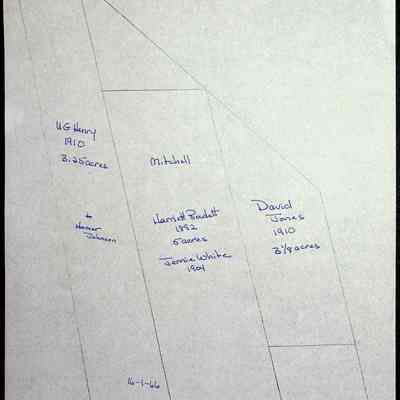 UG Henry
1910
3.25 acres
to
Homer
Johnson
Mitchell
Harriett
1892
5 acres
Jennie White
1904
David
Jones
1910
3 1/8 acres
16-1-66